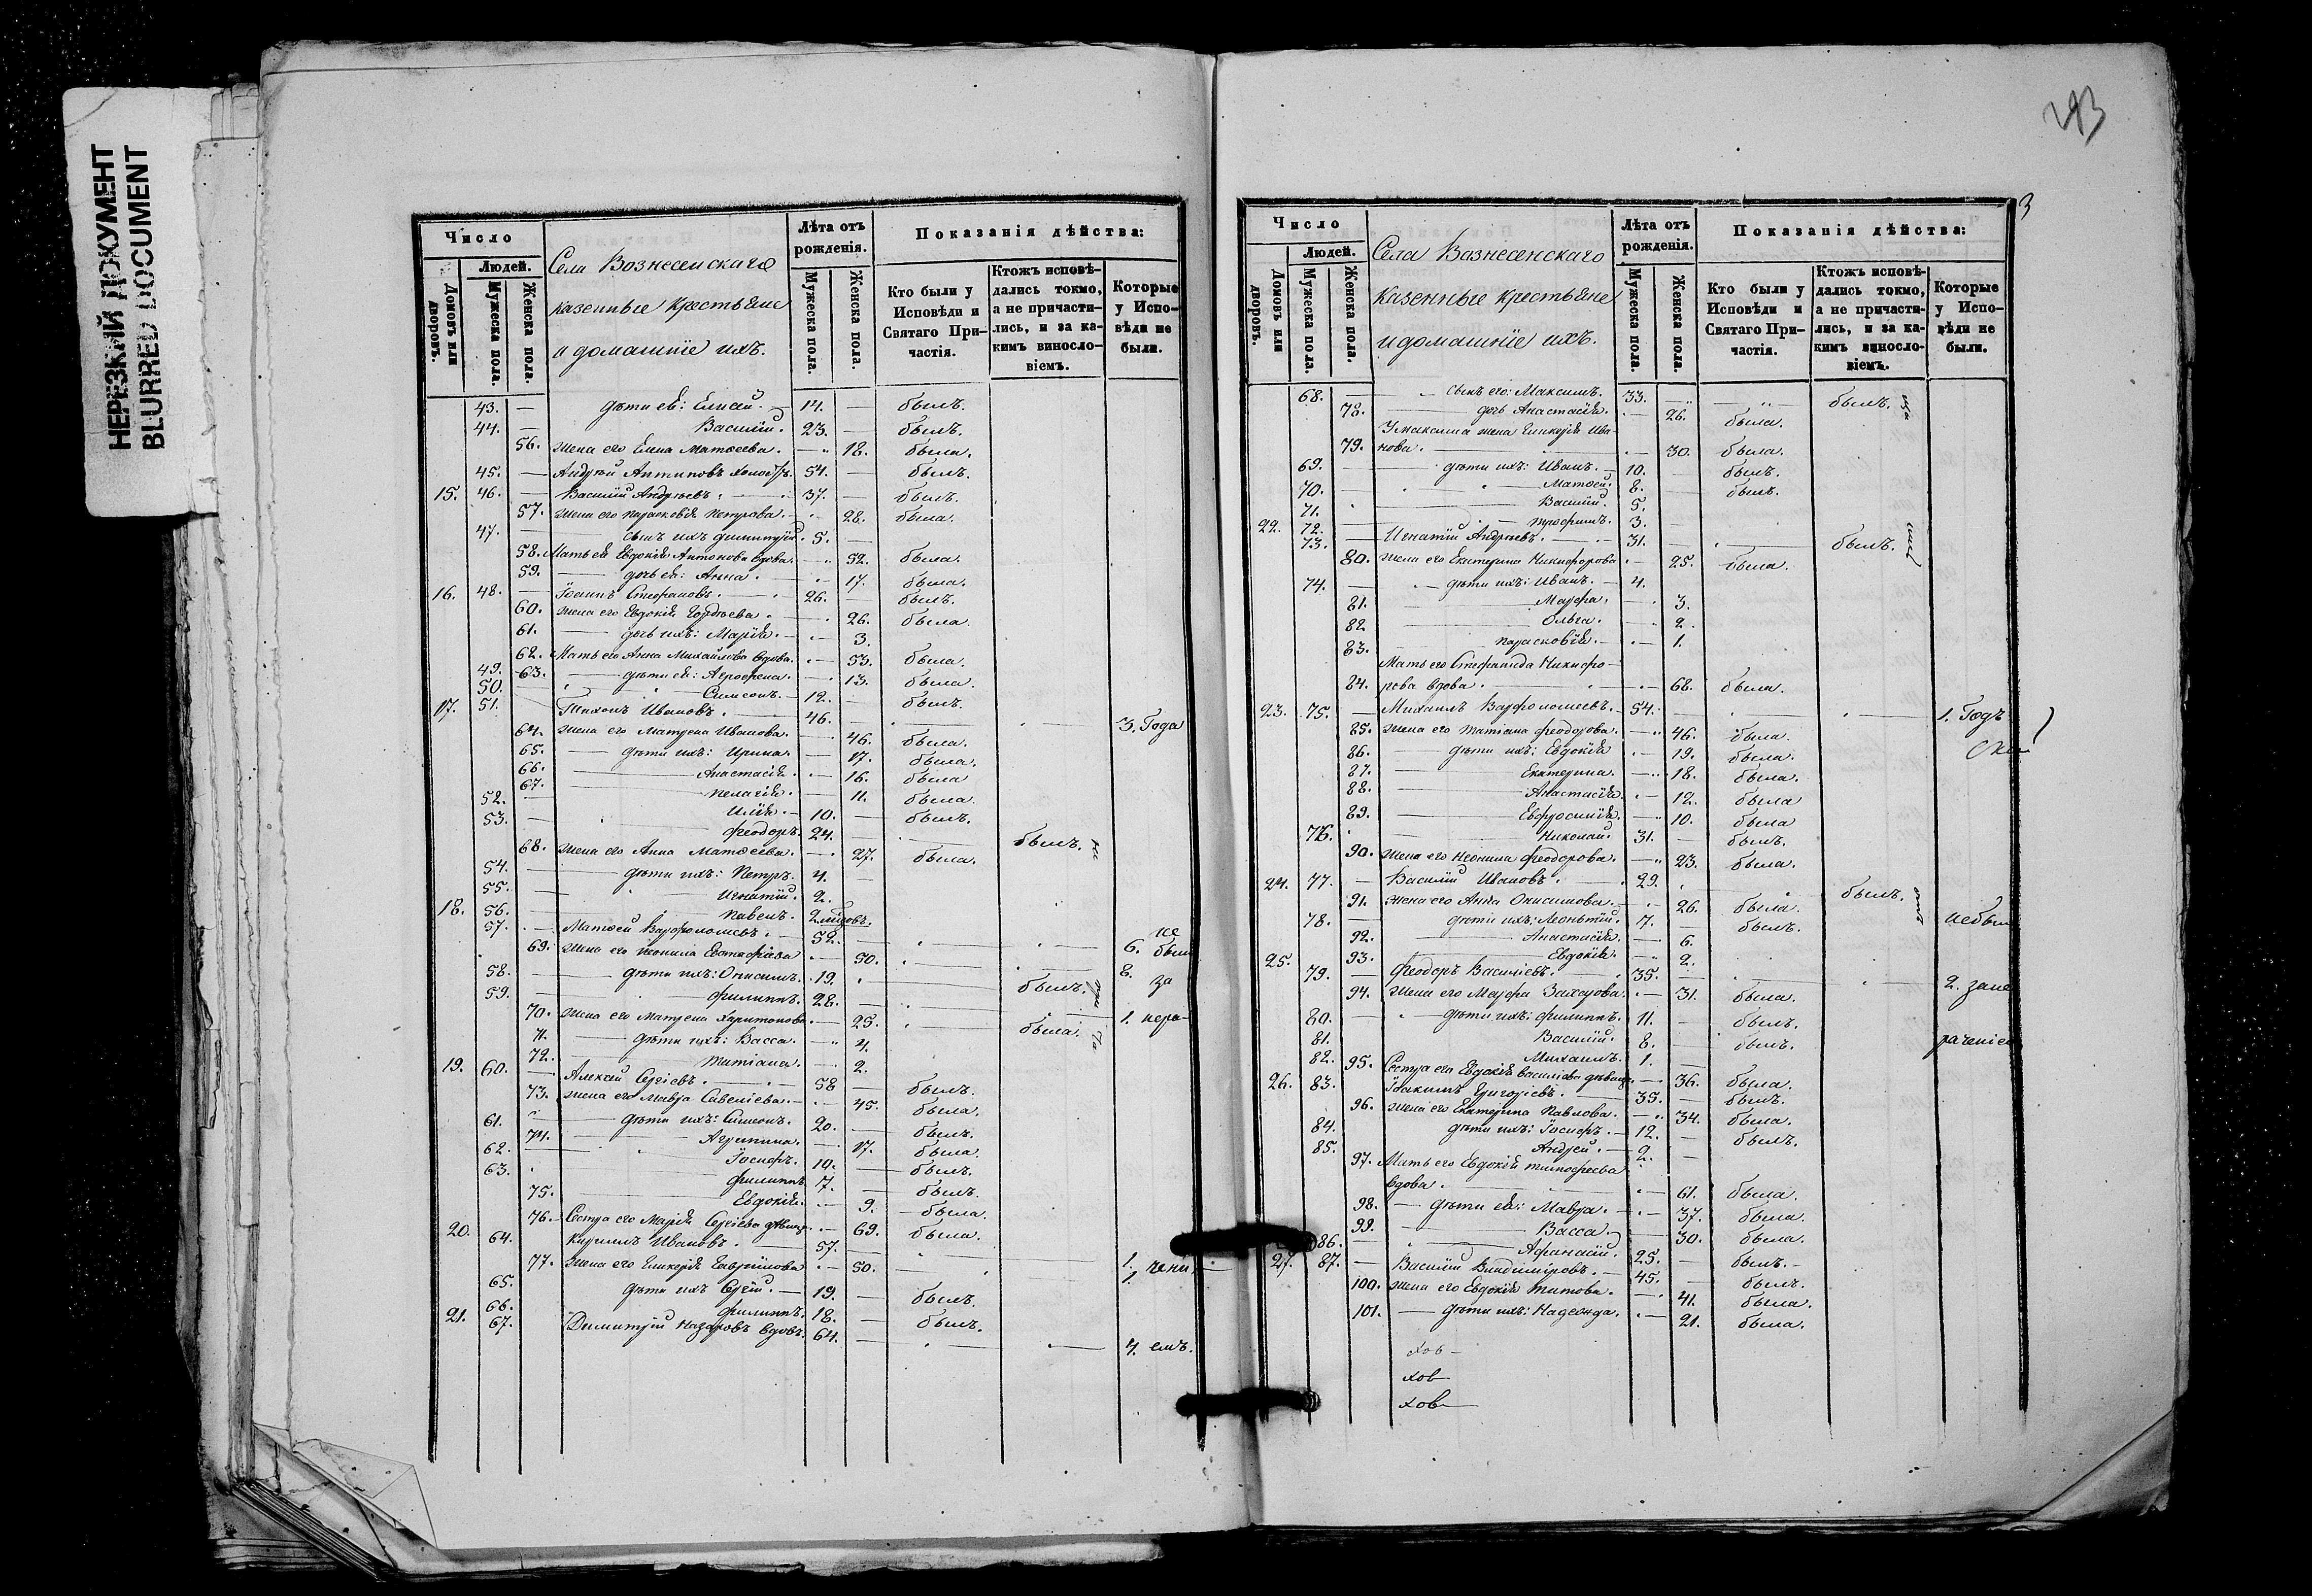 НЕРЕЗКИЙ ДОКУМЕНТ
BLURRED DOCUMENT
Число
Людей.
Домовъ или дворовъ.
Мужеска пола.
Женска пола.
Села Вознесенскаго
казенные крестьяне
и домашніе ихъ.
Лѣта отъ рожденія.
Мужеска пола.
Женска пола.
Показанія дѣйства:
Кто были у Исповѣди и Святаго При-частія.
Ктожъ исповѣ-дались токмо, а не причасти-лись, и за ка-кимъ винсло-віемъ.
Которые у Испо-вѣди не были.
43. — дѣти ея: Елисей. — 14. — былъ.
44. — Василій. 23. — былъ.
56. жена его Елена Матѳеева. — 18. была.
45. — Андрей Антиповъ 54. — былъ.
15. 46. — Василій Андреевъ. 37. — былъ.
57. жена его Параскевія Петрова. — 28. была.
47. сынъ ихъ Димитрій. 5. —
58. Мать ея Евдокія Антонова вдова. — 52. была.
59. — дочь ея: Анна. — 17. была.
16. 48. — Іоаннъ Стефановъ. 26. — былъ.
60. жена его Евдокія Гордѣева. — 26. была.
61. — дочь ихъ: Марія. — 3.
62. Мать его Анна Михайлова вдова. — 53. была.
49. 63. — дѣти ея: Агрофена. — 13. была.
50. — Симеонъ. — 12. — былъ.
17. 51. Тихонъ Ивановъ. 46. — 3. Года
64. жена его Матрена Иванова. — 46. была.
65. — дѣти ихъ: Ирина. — 17. была.
66. — Анастасія. — 16. была
67. — Пелагія. — 11. была.
52. — Илія. — 10. — былъ.
53. — Феодоръ. 24. — былъ.
68. жена его Анна Матѳеева. — 27. была.
54. — дѣти ихъ: Петръ. 4. —
55. — Игнатій. 2.
18. 56. — Павелъ. 2
57. — Матѳей Варфоломеевъ. — 52. — 6. не были
69. жена его Неонила Евстафіева — 50. 8. за
58. — дѣти ихъ: Онисимъ. 19. — былъ.
59. — Филиппъ. 28. — 1. нера-
70. жена его Матрена Харитонова. — 25. была.
71. — дѣти ихъ: Васса. — 4.
72. — Татіана. — 2.
19. 60. — Алексѣй Сергіевъ. 58 — былъ.
73. жена его Мавра Савеліева. — 45. была.
61. — дѣти ихъ: Симеонъ. 20. — былъ.
74. — Агрипина. — 17. была.
62. — Іосифъ. 10. — былъ.
63. Филиппъ 7. — былъ.
75. — Евдокія. — 9. была.
76. Сестра его Марія Сергіева дѣвица — 69. была.
20. 64. Кирилъ Ивановъ. 57. — 1. чені
77. жена его Гликерія Гавріилова — 50. 1.
65. дѣти ихъ Сергій. — 19. — былъ.
66. Филиппъ. 18. — былъ.
21. 67. Димитрій Назаровъ вдовъ. 64. — 4. емъ.
293
3
Число
Людей.
Домовъ или дворовъ.
Мужеска пола.
Женска пола.
Села Вознесенскаго
казенные крестьяне
и домашніе ихъ.
Лѣта отъ рожденія.
Мужеска пола.
Женска пола.
Показанія дѣйства:
Кто были у Исповѣди и Святаго При-частія.
Ктожъ исповѣ-дались токмо, а не причасти-лись, и за ка-кимъ винсло-віемъ.
Которые у Испо-вѣди не были.
68. — сынъ его: Максимъ. 33. — былъ.
78. — дочь Анастасія. — 26. была.
У максима жена Гликерія Ива-
79. нова. — 30. была.
69. — дѣти ихъ: Иванъ. — 10. былъ.
70. — Матѳей. 8. — былъ.
71. — Василій. 5.
72. — Трофимъ. 3. —
22. 73. — Игнатій Андреевъ. 31. — былъ.
80. жена его Екатерина Никифорова — 25. была.
74. — дѣти ихъ: Иванъ. — 4.
81. — Марфа. — 3.
82 — Ольга. — 2.
83. — Параскевія. — 1.
Мать его Стефанида Никифо-
84. рова вдова. — 68. была.
23. 75. — Михаилъ Варфоломеевъ. — 54. — 1. Годъ
85. жена его Татіана Феодорова. — 46. была.
86. — дѣти ихъ: Евдокія — 19. была.
87. — Екатерина. — 18. была.
88. — Анастасія. — 12. была
89. — Евфросинія. — 10. была
76. — Николай. 31. — былъ.
90. жена его Неонила Феодорова. — 23. была.
24. 77. — Василій Ивановъ. 29. былъ.
91. жена его Анна Онисимова. — 26. была.
78. — дѣти ихъ: Леонтій. 7. — былъ. небыл
92. — Анастасія. — 6.
93. — Евдокія. — 2.
25. 79. — Феодоръ Василіевъ. 35. — 2. зане
94. жена его Марфа Захарова. — 31. была.
80. — дѣти ихъ: Филиппъ. 11. — былъ.
81. Василій. 8. — былъ. раченіе
82. Михаилъ. 1. —
95. Сестра его Евдокія Василіева дѣвица — 36. была.
26. 83. Іоакимъ Григоріевъ. 35. — былъ.
96. жена его Екатерина Павлова. — 34. была.
84. дѣти ихъ: Іосифъ. — 12. — былъ.
85. Андрей. — 2. —
97. Мать его Евдокія Тимофеева
вдова. — 61. была.
98. — дѣти ея: Мавра. — 37. была.
99. — Васса. 30. была.
86. — Афанасій. 25. — былъ.
27. 87. — Василій Владиміровъ. — 45. — былъ.
100. жена его Евдокія Титова. — 41. была.
101. — дѣти ихъ: Надежда. — 21. была.